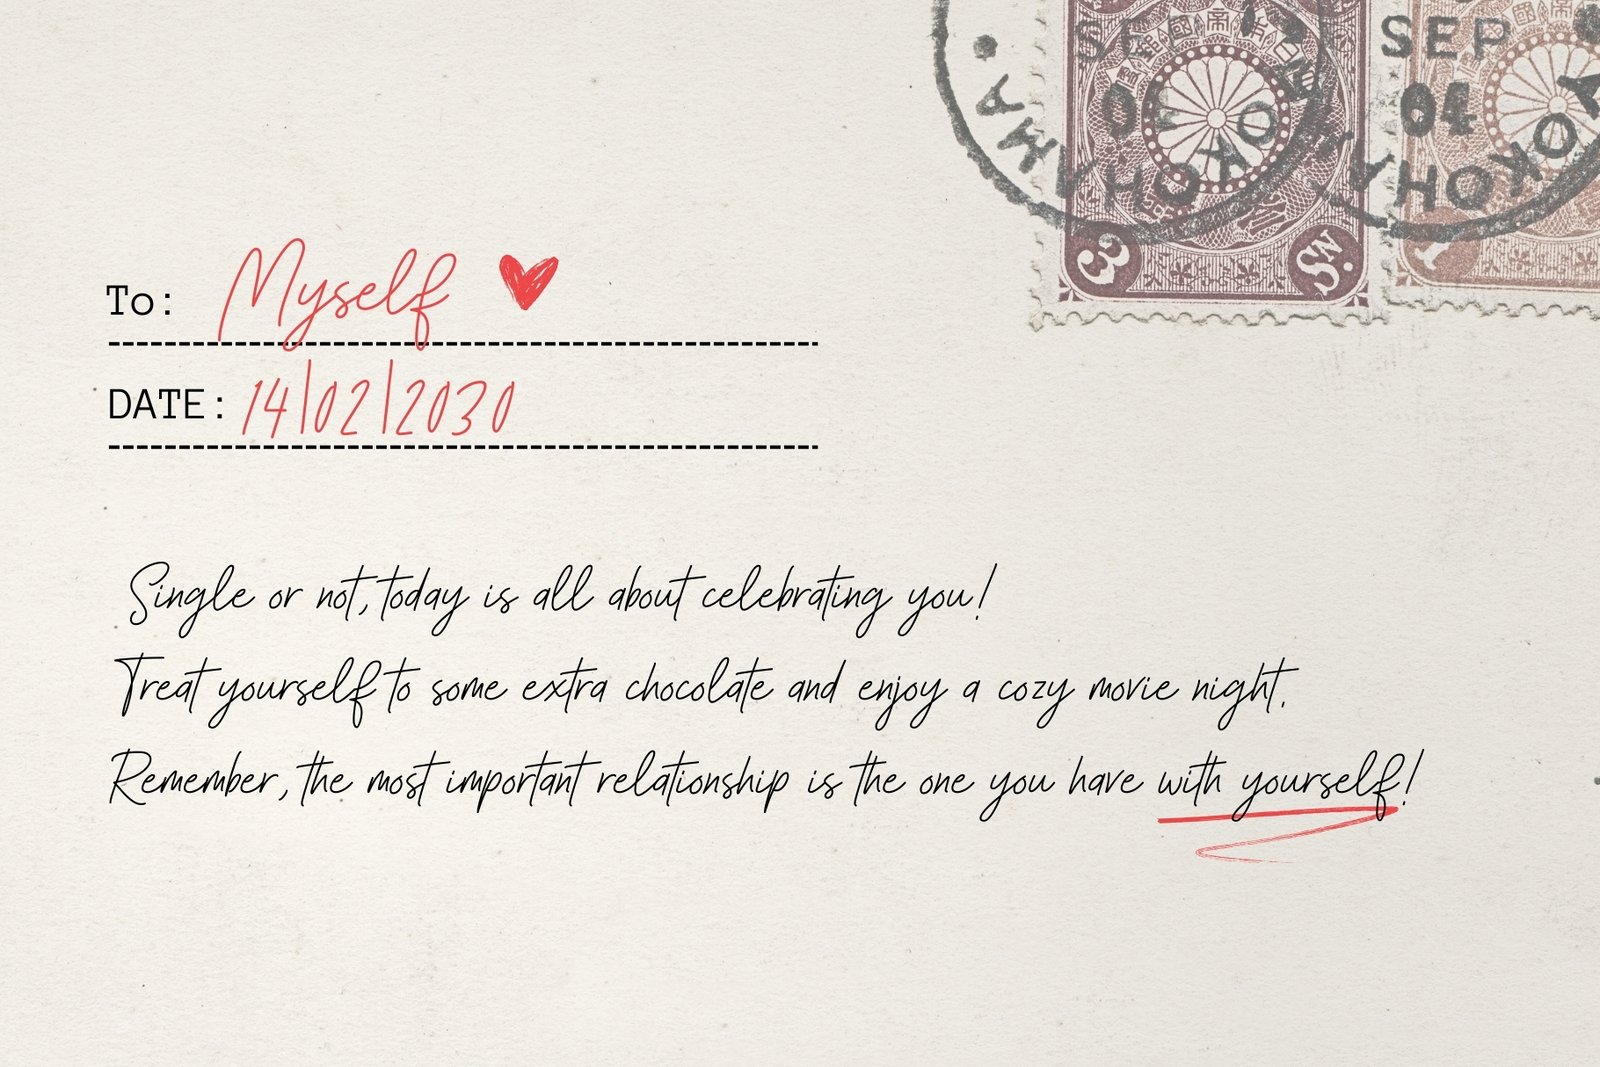 SEP
04
YOKOHAMA
3 Sn.
SEP
04
YOKOHAMA
1
To: Myself
DATE: 14/02/2030
Single or not, today is all about celebrating you!
Treat yourself to some extra chocolate and enjoy a cozy movie night.
Remember, the most important relationship is the one you have with yourself!